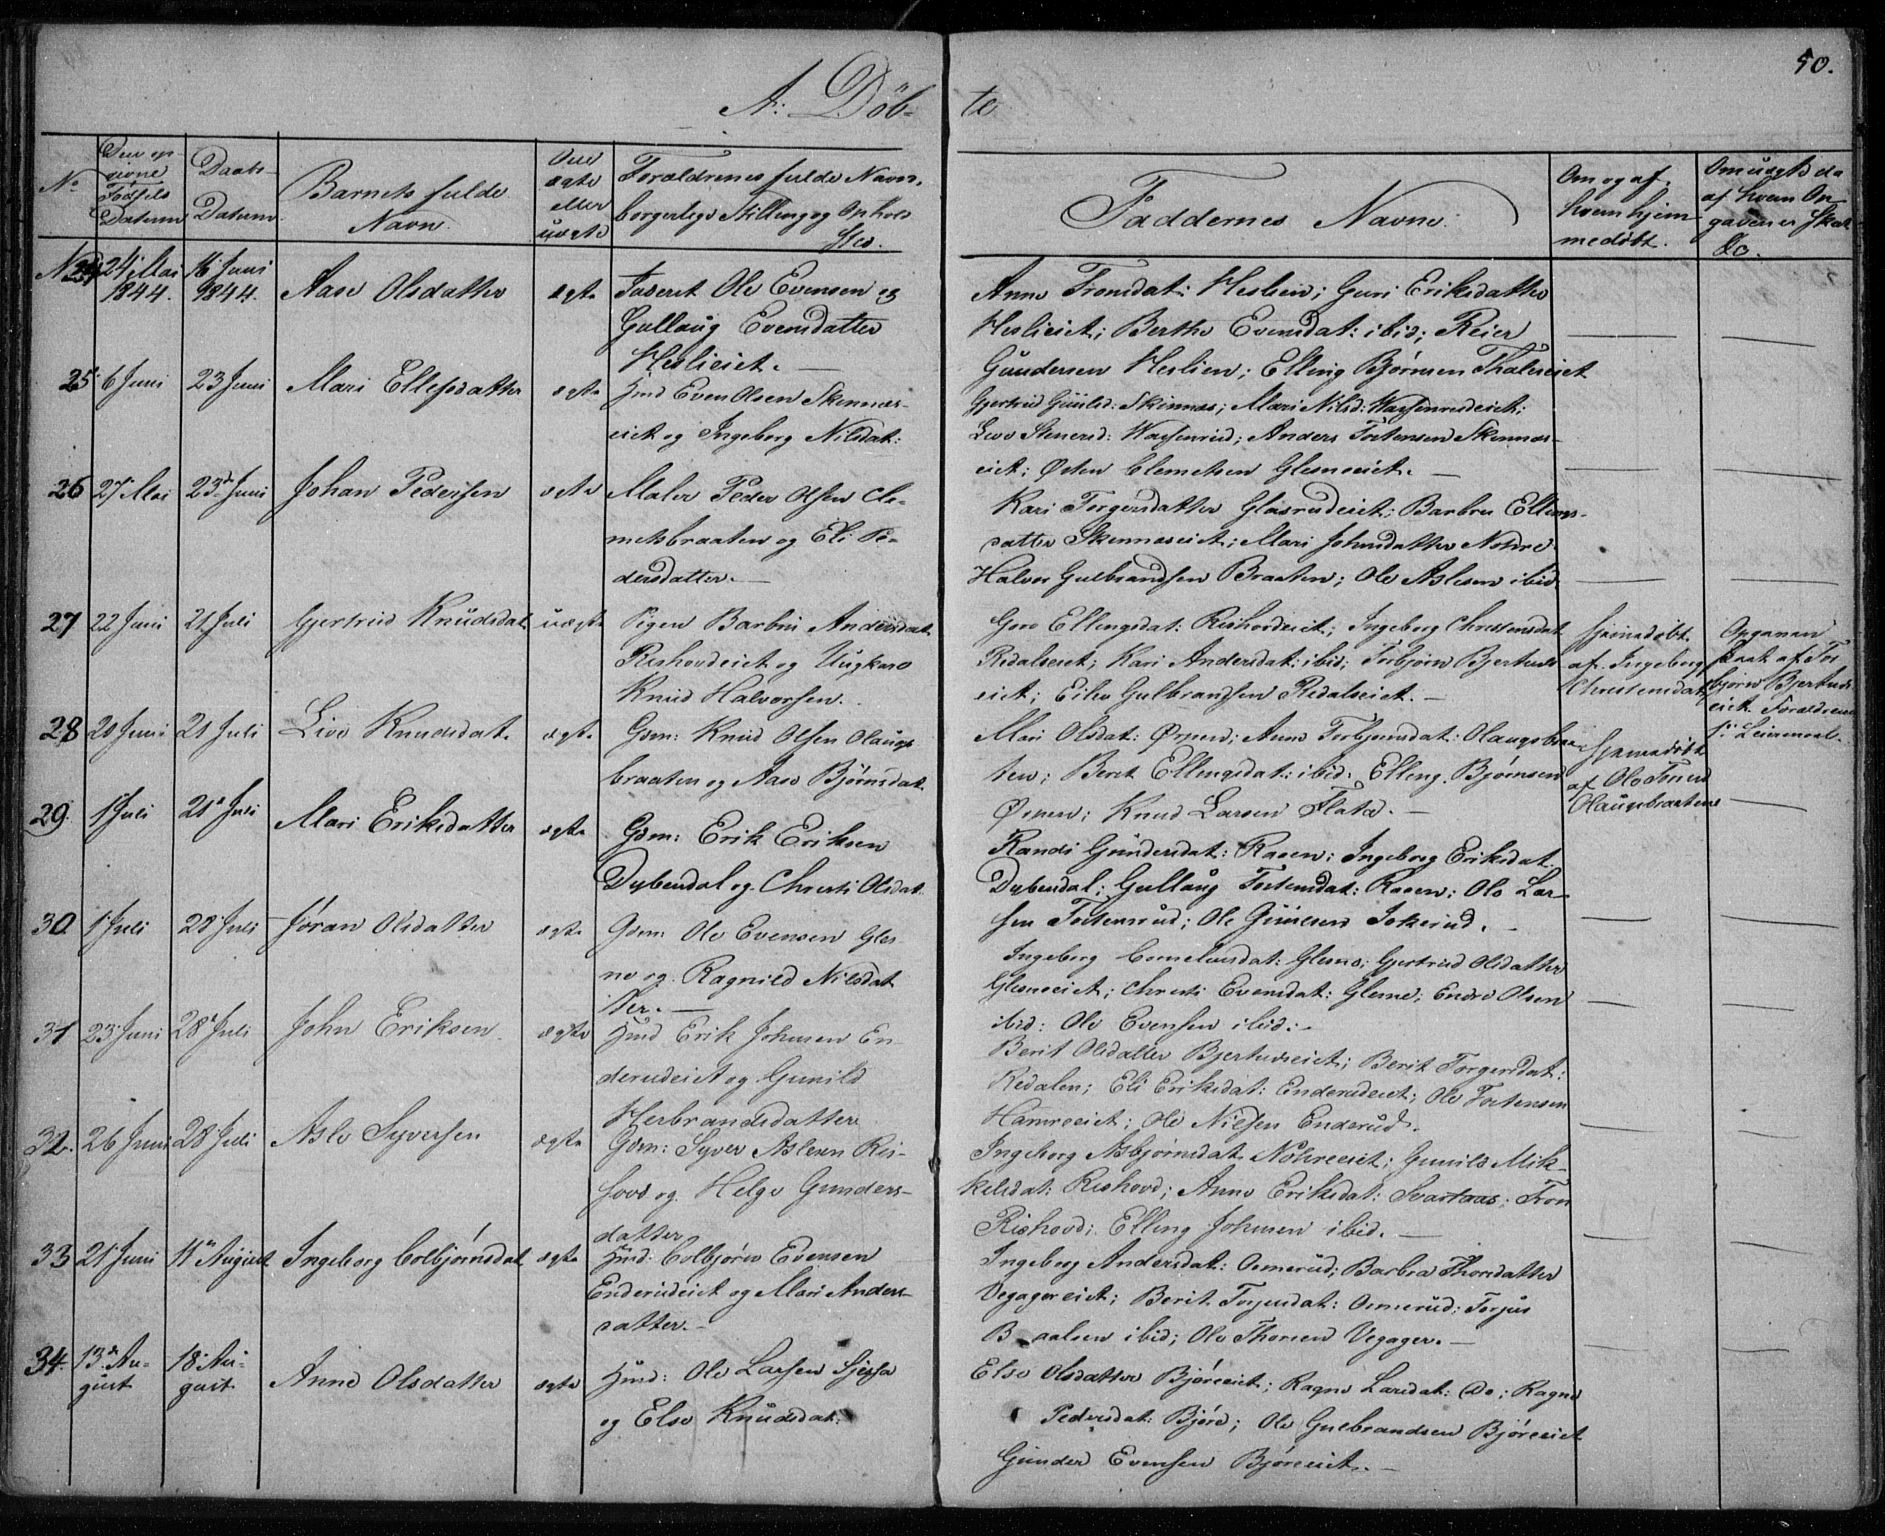 50.
A: Döb- te
No
Den op-
givne
Fødsels
Datum
Daabs-
Datum.
Barnets fulde
Navn.
Om
ægte
eller
uægte
Forældrenes fulde Navn,
borgerlige Stilling og Opholds
Sted.
Faddernes Navne.
Om og af
hvem hjem-
medøbt.
Om uægte da
af hvem An-
gaven er skeet
&c.
No 24 24 Mai 16 Juni
1844. 1844. Aase Olsdatter ægte Inderst Ole Evensen og
Gullaug Evensdatter
Heslieiet.
Anne Tronsdat: Heslien; Guri Eriksdatter
Heslieiet; Berthe Evensdat: ibid; Reier
Gundersen Heslien; Elling Bjørnsen Tholeieiet
25 6 Juni 23 Juni Mari Ellefsdatter ægte Huusmd Even Olsen Skinnes-
eiet og Ingeborg Nilsdat:
Gjertrud Guulsd: Skinnes; Mari Nilsd:
Live Stenersd: Anders Tostensen Skinnes-
eiet; Østen Clemetsen Glesneeiet.
26 27 Mai 23d Juni Johan Pedersen ægte Maler Peder Olsen Cle-
metsbraaten og Eli Pe-
dersdatter.
Kari Torgersdatter Glasrudeiet; Barbra Ellings-
datter Skinneseiet; Mari Johnsdatter Nohre
Halvor Gulbrandsen Braaten; Ole Aslesen ibid.
27 22 Juni 21 Juli Gjertrud Knudsdat uægte Pigen Barbra Andersdat
Rishovdeiet og Ungkarl
Knud Halvorsen.
Goro Ellingsdat: Rishovdeiet; Ingeborg Christensdat
Redalseiet; Kari Andersdat: ibid; Torbjørn Bjertnes
eiet; Erik Gulbrandsen Redalseiet.
Hjemdøbt
af Ingeborg
Christensdat
Opgaven
skeet af Tor-
bjørn Bjertnes-
eiet Forældrenes
1ste Leiermaal.
28 20 Juni 21 Juli Live Knudsdat. ægte Gdm: Knud Olsen Olaugs-
braaten og Aase Bjørnsdat.
Mari Olsdat: Ørpen; Anne Torbjørnsdat: Olaugsbraa-
ten; Berit Ellingsdat: ibid: Elling Bjørnsen
Ørpen; Knud Larsen Flata.
Hjemmedøbt
af Ole
Olaugsbraaten
29 1 Juli 21 Juli Mari Eriksdatter ægte Gdm: Erik Eriksen
Dybendal og Christi Olsdat.
Randi Gundersdat: Raaen; Ingeborg Eriksdat
Dybendal; Gullaug Tostensdat: Raaen; Ole Lar-
sen Tostensrud; Ole Guulsen Jokerud.
30 1 Juli 28 Juli Jøran Olsdatter ægte Gdm: Ole Evensen Gles-
ne og Ragnild Nilsdat-
ter.
Ingeborg Corneliusdat: Glesne; Gjertrud Olsdatter
Glesneeiet; Christi Evensdat: Glesne; Endre Olsen
ibid: Ole Evensen ibid:
31 23 Juni 28 Juli John Eriksen ægte Hmd Erik Johnsen En-
derudeiet og Gunild
Herbrandsdatter
Berit Olsdatter Bjertneseiet; Berit Torgersdat:
Redalen; Eli Eriksdat: Enderudeiet; Ole Tostensen
Hamreeiet; Ole Nielsen Enderud.
32. 26 Juni 28 Juli Asle Syversen ægte Gdm: Syver Aslesen Ris-
hovd og Helge Gunders-
datter
Ingeborg Asbjørnsdat Nohreeiet; Gunild Mik-
kelsdat: Rishovd; Anne Eriksdat: Svartaas; Tron
Rishovd; Elling Johnsen ibid.
33 21 Juni 11 August Ingeborg Colbjørnsdat ægte Hmd: Colbjørn Evensen
Enderudeiet og Mari Anders-
datter.
Ingeborg Andersdat: Ormerud; Barbra Thorsdatter
Vegagereiet; Berit Torjusdat: Ormerud: Torjus
ibid; Ole Thorsen Vegager.
34. 13d Au- 18 Au-
gust gust Anne Olsdatter ægte Hmd: Ole Larsen
og Else Knudsdat:
Else Olsdatter Bjøreeiet; Ragne Larsdat: Do; Ragne
Pedersdat: Bjøre; Ole Gulbrandsen Bjøreeiet
Gunder Evensen Bjøreeiet.